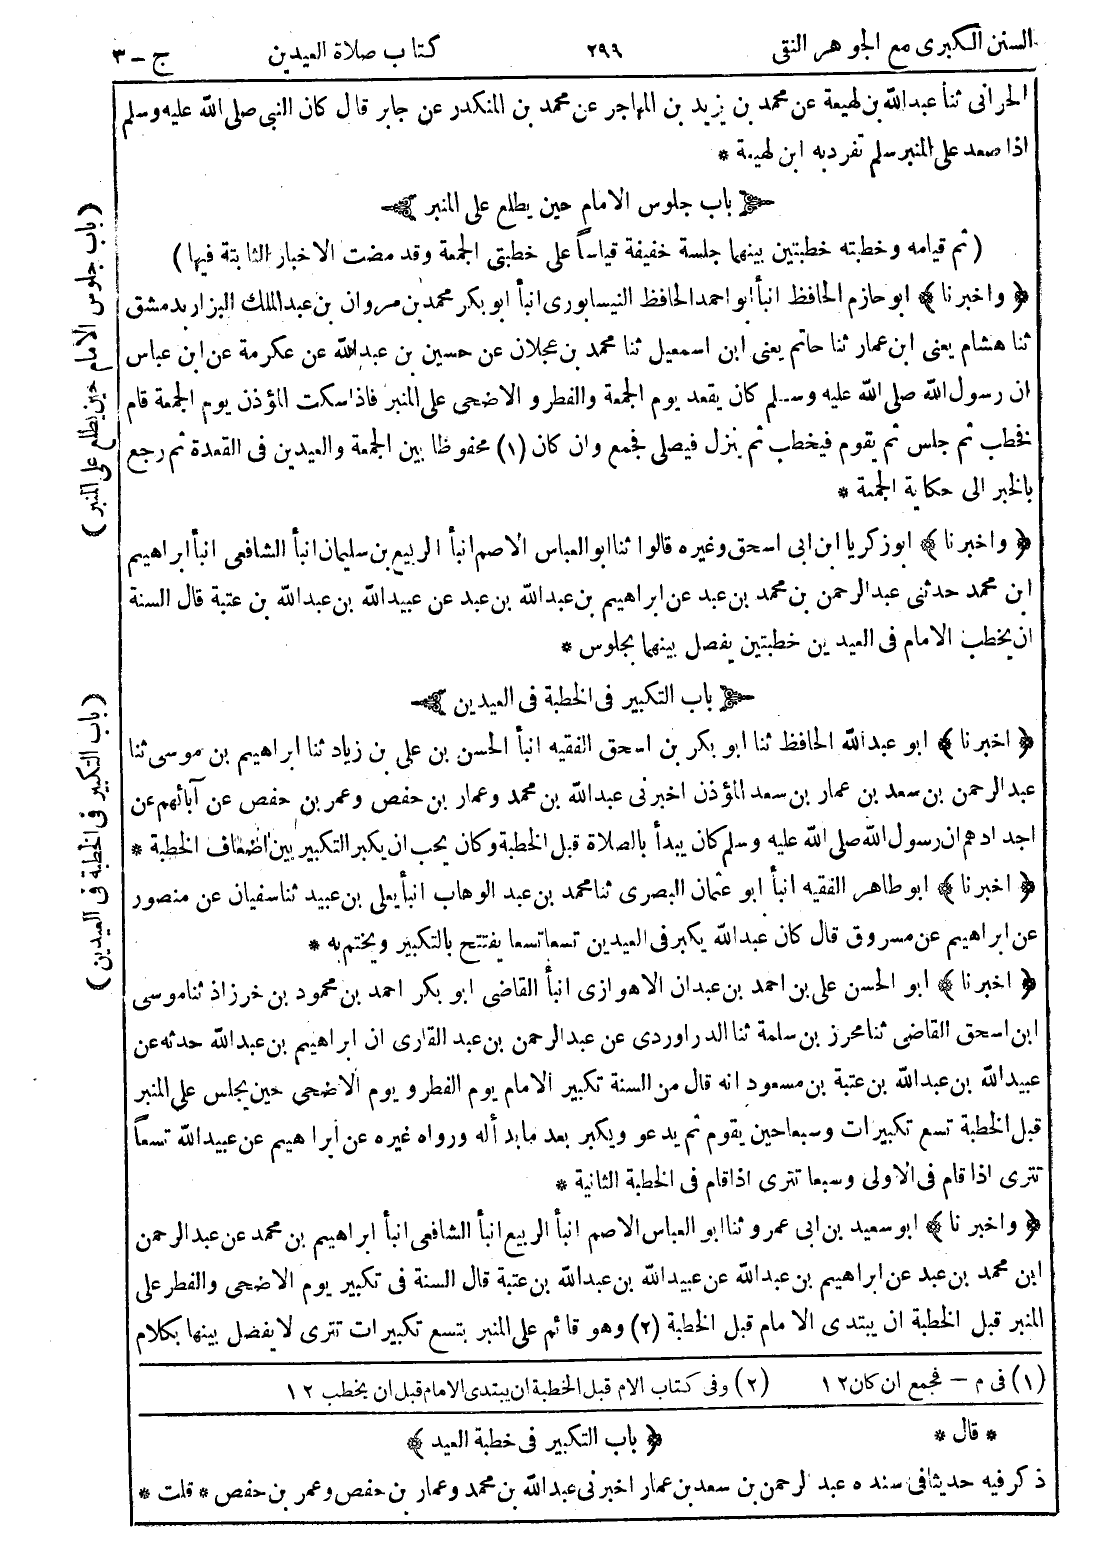 السنن الكبرى مع الجوهر النقى ٢٩٩ كتاب صلاة العيدين ج - ٣
الحرانى ثنا عبدالله بن لهيعة عن محمد بن زيد بن المهاجر عن محمد بن المنكدر عن جابر قال كان النبى صلى الله عليه وسلم
اذا صعد على المنبر سلم تفرد به ابن لهيعة *
﴿ باب جلوس الامام حين يطلع على المنبر ﴾
( ثم قيامه وخطبته خطبتين بينهما جلسة خفيفة قياساً على خطبتى الجمعة وقد مضت الاخبار الثابتة فيها )
﴿ واخبرنا ﴾ ابو حازم الحافظ انبأ ابو احمد الحافظ النيسابورى انبأ ابو بكر محمد بن مروان بن عبدالملك البزار بدمشق
ثنا هشام يعنى ابن عمار ثنا حاتم يعنى ابن اسمعيل ثنا محمد بن عجلان عن حسين بن عبدالله عن عكرمة عن ابن عباس
ان رسول الله صلى الله عليه وسلم كان يقعد يوم الجمعة والفطر و الاضحى على المنبر فاذا سكت المؤذن يوم الجمعة قام
فخطب ثم جلس ثم يقوم فيخطب ثم ينزل فيصلى فجمع وان كان (١) محفوظا بين الجمعة والعيدين فى القعدة ثم رجع
بالخبر الى حكاية الجمعة *
﴿ واخبرنا ﴾ ابوزكريا ابن ابى اسحق وغيره قالوا ثنا ابو العباس الاصم انبأ الربيع بن سليمان انبأ الشافعى انبأ ابراهيم
ابن محمد حدثنى عبدالرحمن بن محمد بن عبد عن ابراهيم بن عبدالله بن عبد عن عبيدالله بن عبدالله بن عتبة قال السنة
ان يخطب الامام فى العيدين خطبتين يفصل بينهما بجلوس *
﴿ باب التكبير فى الخطبة فى العيدين ﴾
﴿ اخبرنا ﴾ ابو عبدالله الحافظ ثنا ابو بكر بن اسحق الفقيه انبأ الحسن بن على بن زياد ثنا ابراهيم بن موسى ثنا
عبد الرحمن بن سعد بن عمار بن سعد المؤذن اخبرنى عبدالله بن محمد وعمار بن حفص وعمر بن حفص عن آبائهم عن
اجدادهم ان رسول الله صلى الله عليه وسلم كان يبدأ بالصلاة قبل الخطبة وكان يحب ان يكبر التكبير بين اضعاف الخطبة *
﴿ اخبرنا ﴾ ابو طاهر الفقيه انبأ ابو عثمان البصرى ثنا محمد بن عبد الوهاب انبأ يعلى بن عبيد ثنا سفيان عن منصور
عن ابراهيم عن مسروق قال كان عبدالله يكبر فى العيدين تسعا تسعا يفتتح بالتكبير ويختم به *
﴿ اخبرنا ﴾ ابو الحسن على بن احمد بن عبدان الاهوازى انبأ القاضى ابو بكر احمد بن محمود بن خرزاذ ثنا موسى
ابن اسحق القاضى ثنا محرز بن سلمة ثنا الدراوردى عن عبدالرحمن بن عبد القارى ان ابراهيم بن عبدالله حدثه عن
عبيدالله بن عبدالله بن عتبة بن مسعود انه قال من السنة تكبير الامام يوم الفطر و يوم الاضحى حين يجلس على المنبر
قبل الخطبة تسع تكبيرات وسبعا حين يقوم ثم يدعو ويكبر بعد ما بدأ له ورواه غيره عن ابراهيم عن عبيدالله تسعاً
تترى اذا قام فى الاولى وسبعا تترى اذا قام فى الخطبة الثانية *
﴿ واخبرنا ﴾ ابو سعيد بن ابى عمرو ثنا ابو العباس الاصم انبأ الربيع انبأ الشافعى انبأ ابراهيم بن محمد عن عبدالرحمن
ابن محمد بن عبد عن ابراهيم بن عبدالله عن عبيدالله بن عبدالله بن عتبة قال السنة فى تكبير يوم الاضحى والفطر على
المنبر قبل الخطبة ان يبتدى الامام قبل الخطبة (٢) وهو قائم على المنبر بتسع تكبيرات تترى لا يفضل بينها بكلام
(١) فى م - فجمع ان كان ١٢ (٢) وفى كتاب الام قبل الخطبة ان يبتدى الامام قبل ان يخطب ١٢
* قال * ﴿ باب التكبير فى خطبة العيد ﴾
ذكر فيه حديثا فى سنده عبد الرحمن بن سعد بن عمار اخبرنى عبدالله بن محمد وعمار بن حفص وعمر بن حفص * قلت *
( باب جلوس الامام حين يطلع على المنبر )
( باب التكبير فى الخطبة فى العيدين )